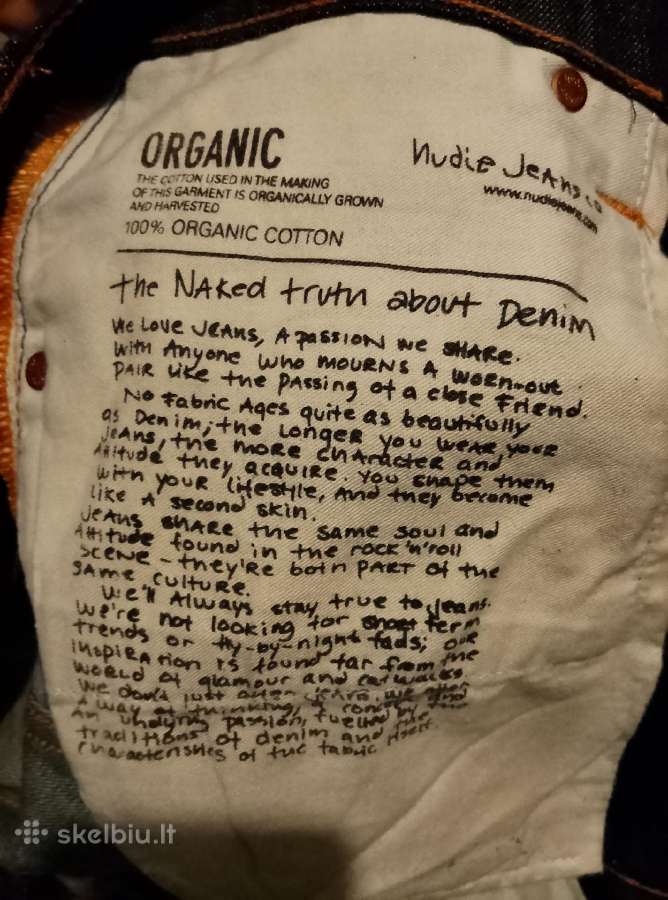 ORGANIC
THE COTTON USED IN THE MAKING
OF THIS GARMENT IS ORGANICALLY GROWN
AND HARVESTED
100% ORGANIC COTTON
Nudie Jeans co
www.nudiejeans.com
the NAKed truth about Denim
We Love JEANS, A pASSION we SHARE.
With Anyone Who MOURNS A WORN-OUT
PAIR Like the PASSing of a close Friend.
No Fabric Ages quite as beautifully
as Denim, the LONGER you WEAR your
jeANS, the more CHARACTER and
Attitude they acquire. You shape them
With your Lifestyle, and they become
like A second skin.
JEANS SHARE the same soul and
Attitude found in the rock'n'roll
SCENE - they're both PART of the
SAME culture.
We'll Always stay true to Jeans.
We're not looking for short term
trends or fly-by-night fads; our
inspiRAtion is found far from the
WORLD of glamour and catwalks
We don't just offer jeans, we offer
A way of thinking, a concept and
An undying passion, fuelled by the
traditions of denim and the
characteristics of the fabric itself.
skelbiu.lt